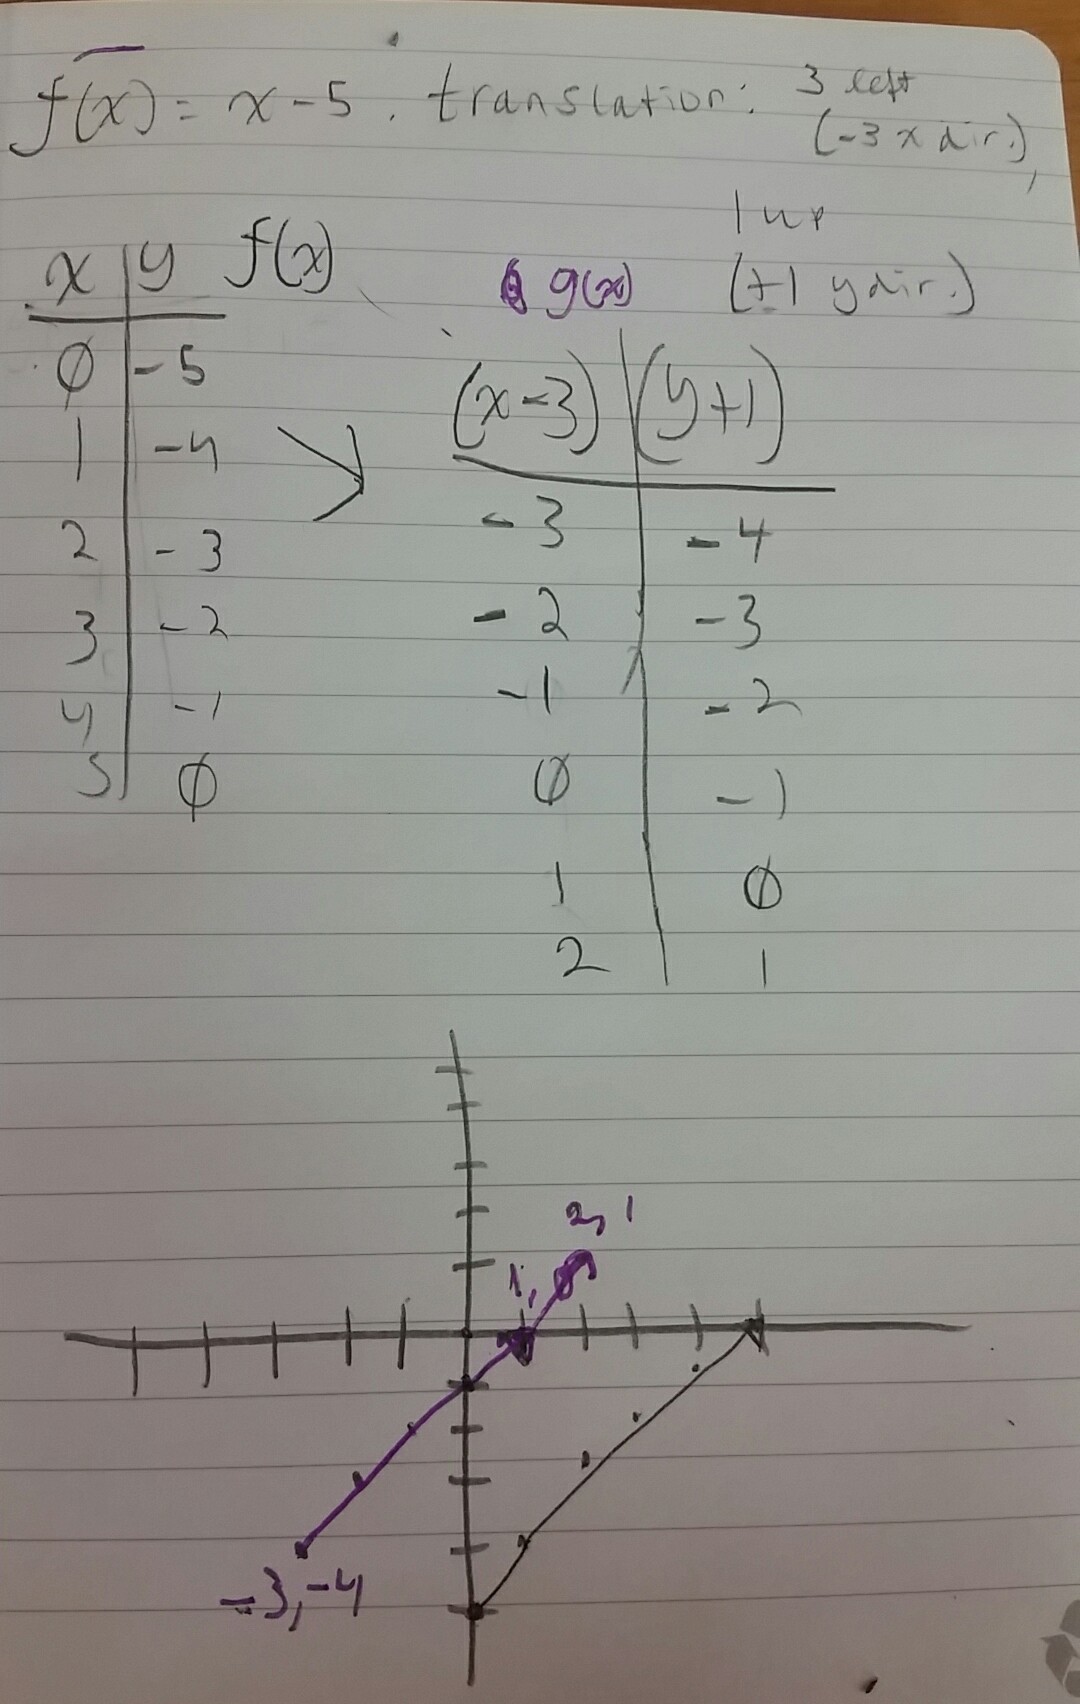 f(x) = x - 5. translation: 3 left
(-3 x dir.),
1 up
(+1 y dir.)
x y f(x)
g(x)
(x-3) (y+1)
0 -5
1 -4
2 -3
3 -2
4 -1
5 0
-3 -4
-2 -3
-1 -2
0 -1
1 0
2 1
2, 1
1,
-3, -4